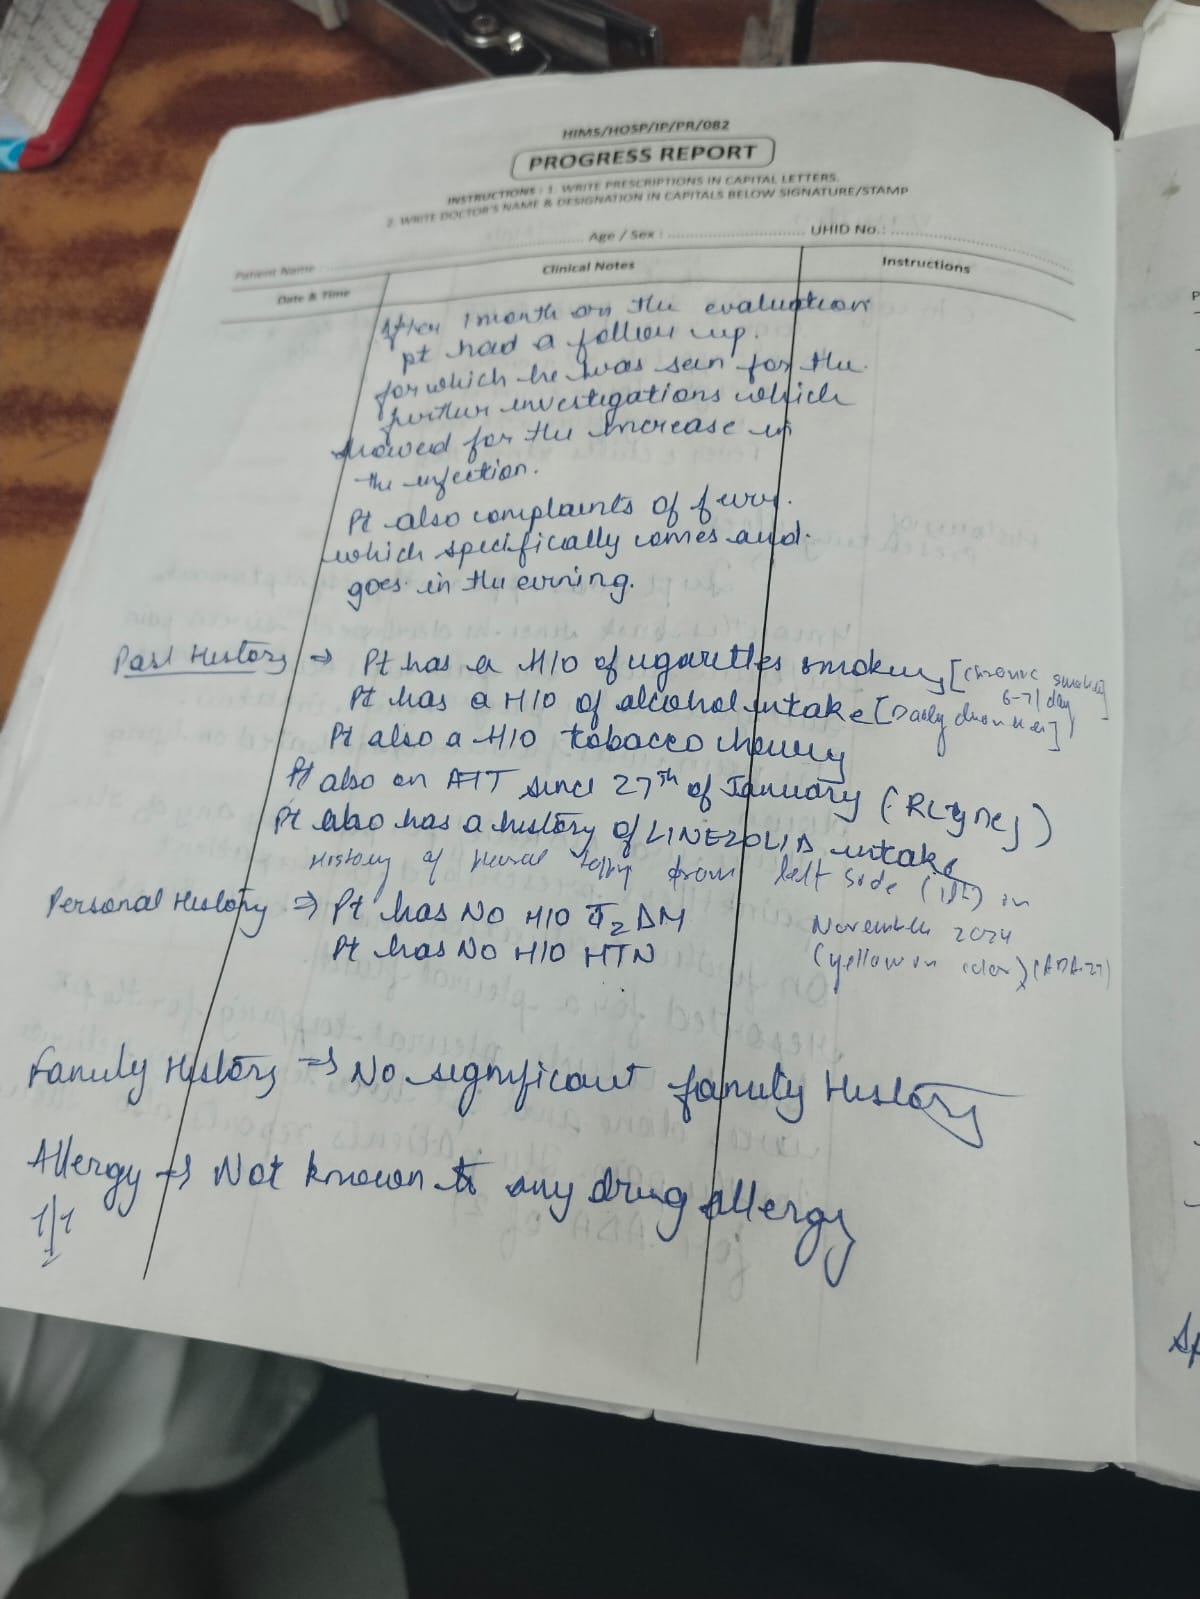 HIMS/HOSP/IP/PR/082
PROGRESS REPORT
INSTRUCTIONS : 1. WRITE PRESCRIPTIONS IN CAPITAL LETTERS.
2. WRITE DOCTOR'S NAME & DESIGNATION IN CAPITALS BELOW SIGNATURE/STAMP
Patient Name : Age / Sex : UHID No.:
Date & Time Clinical Notes Instructions
After 1 month on the evaluation
pt had a follow up.
for which he was seen for the
further investigations which
showed for the increase in
the infection.
Pt also complaints of fever.
which specifically comes and
goes in the evening.
Past History → Pt has a H/O of cigarettes smoking [chronic smoker]
6-7/day
Pt has a H/O of alcohol intake [Daily drunker]
Pt also a H/O tobacco chewing
Pt also on ATT since 27th of January
Pt also has a history of LINEZOLID intake
History of from left side (1st) in
November 2024
(yellow in color) (ADA-27)
Personal History ⇒ Pt has No H/O T2DM
Pt has No H/O HTN
Family History ⇒ No significant family History
Allergy → Not known to any drug allergy